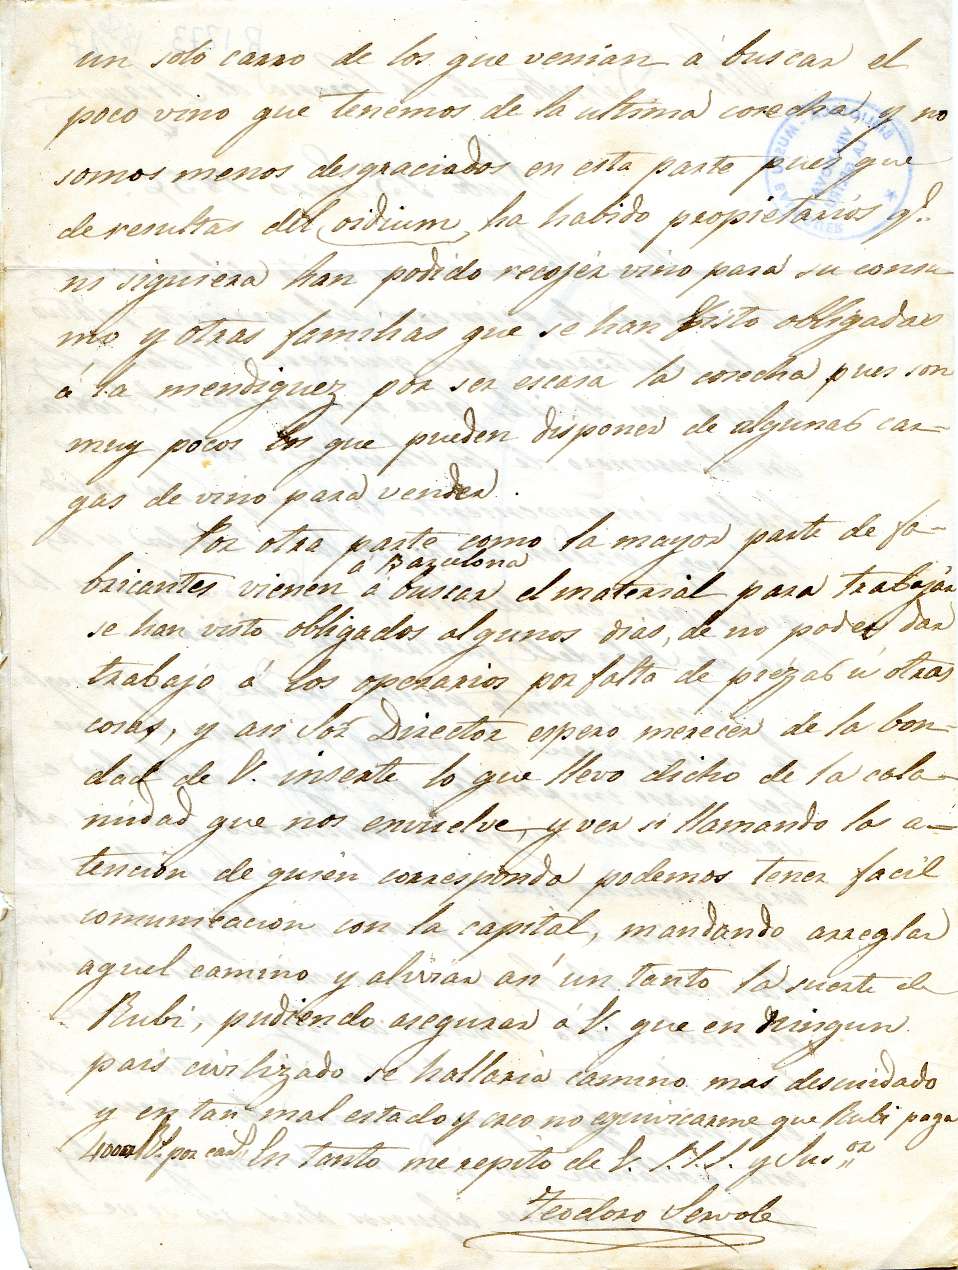 un solo carro de los que venian á buscar el
poco vino que tenemos de la ultima cosecha y no
somos menos desgraciados en esta parte pues que
de resultas del oidium, ha habido propietarios q.e
ni siquiera han podido recojer vino para su consu
mo y otras familias que se han visto obligadas
á la mendiguez por ser escasa la cosecha pues son
muy pocos los que pueden disponer de algunas car-
gas de vino para vender.
Por otra parte como la mayor parte de fa-
á Barcelona
bricantes vienen á buscar el material para trabajar
se han visto obligados algunos dias, de no poder dar
trabajo á los operarios por falta de piezas ú otras
cosas, y asi Sór Director espero merecer de la bon-
dad de V. inserte lo que llevo dicho de la cala-
midad que nos envuelve, y ver si llamando la a-
tencion de quien corresponda podemos tener facil
comunicacion con la capital, mandando arreglar
aquel camino y aliviar asi un tanto la suerte de
Rubi, pudiendo asegurar á V. que en ningun
pais civilizado se hallaria camino mas descuidado
y en tan mal estado y creo no equivocarme que Rubi paga
por En tanto me repito de V. S.S.S. y Sus.or
Teodoro Servole